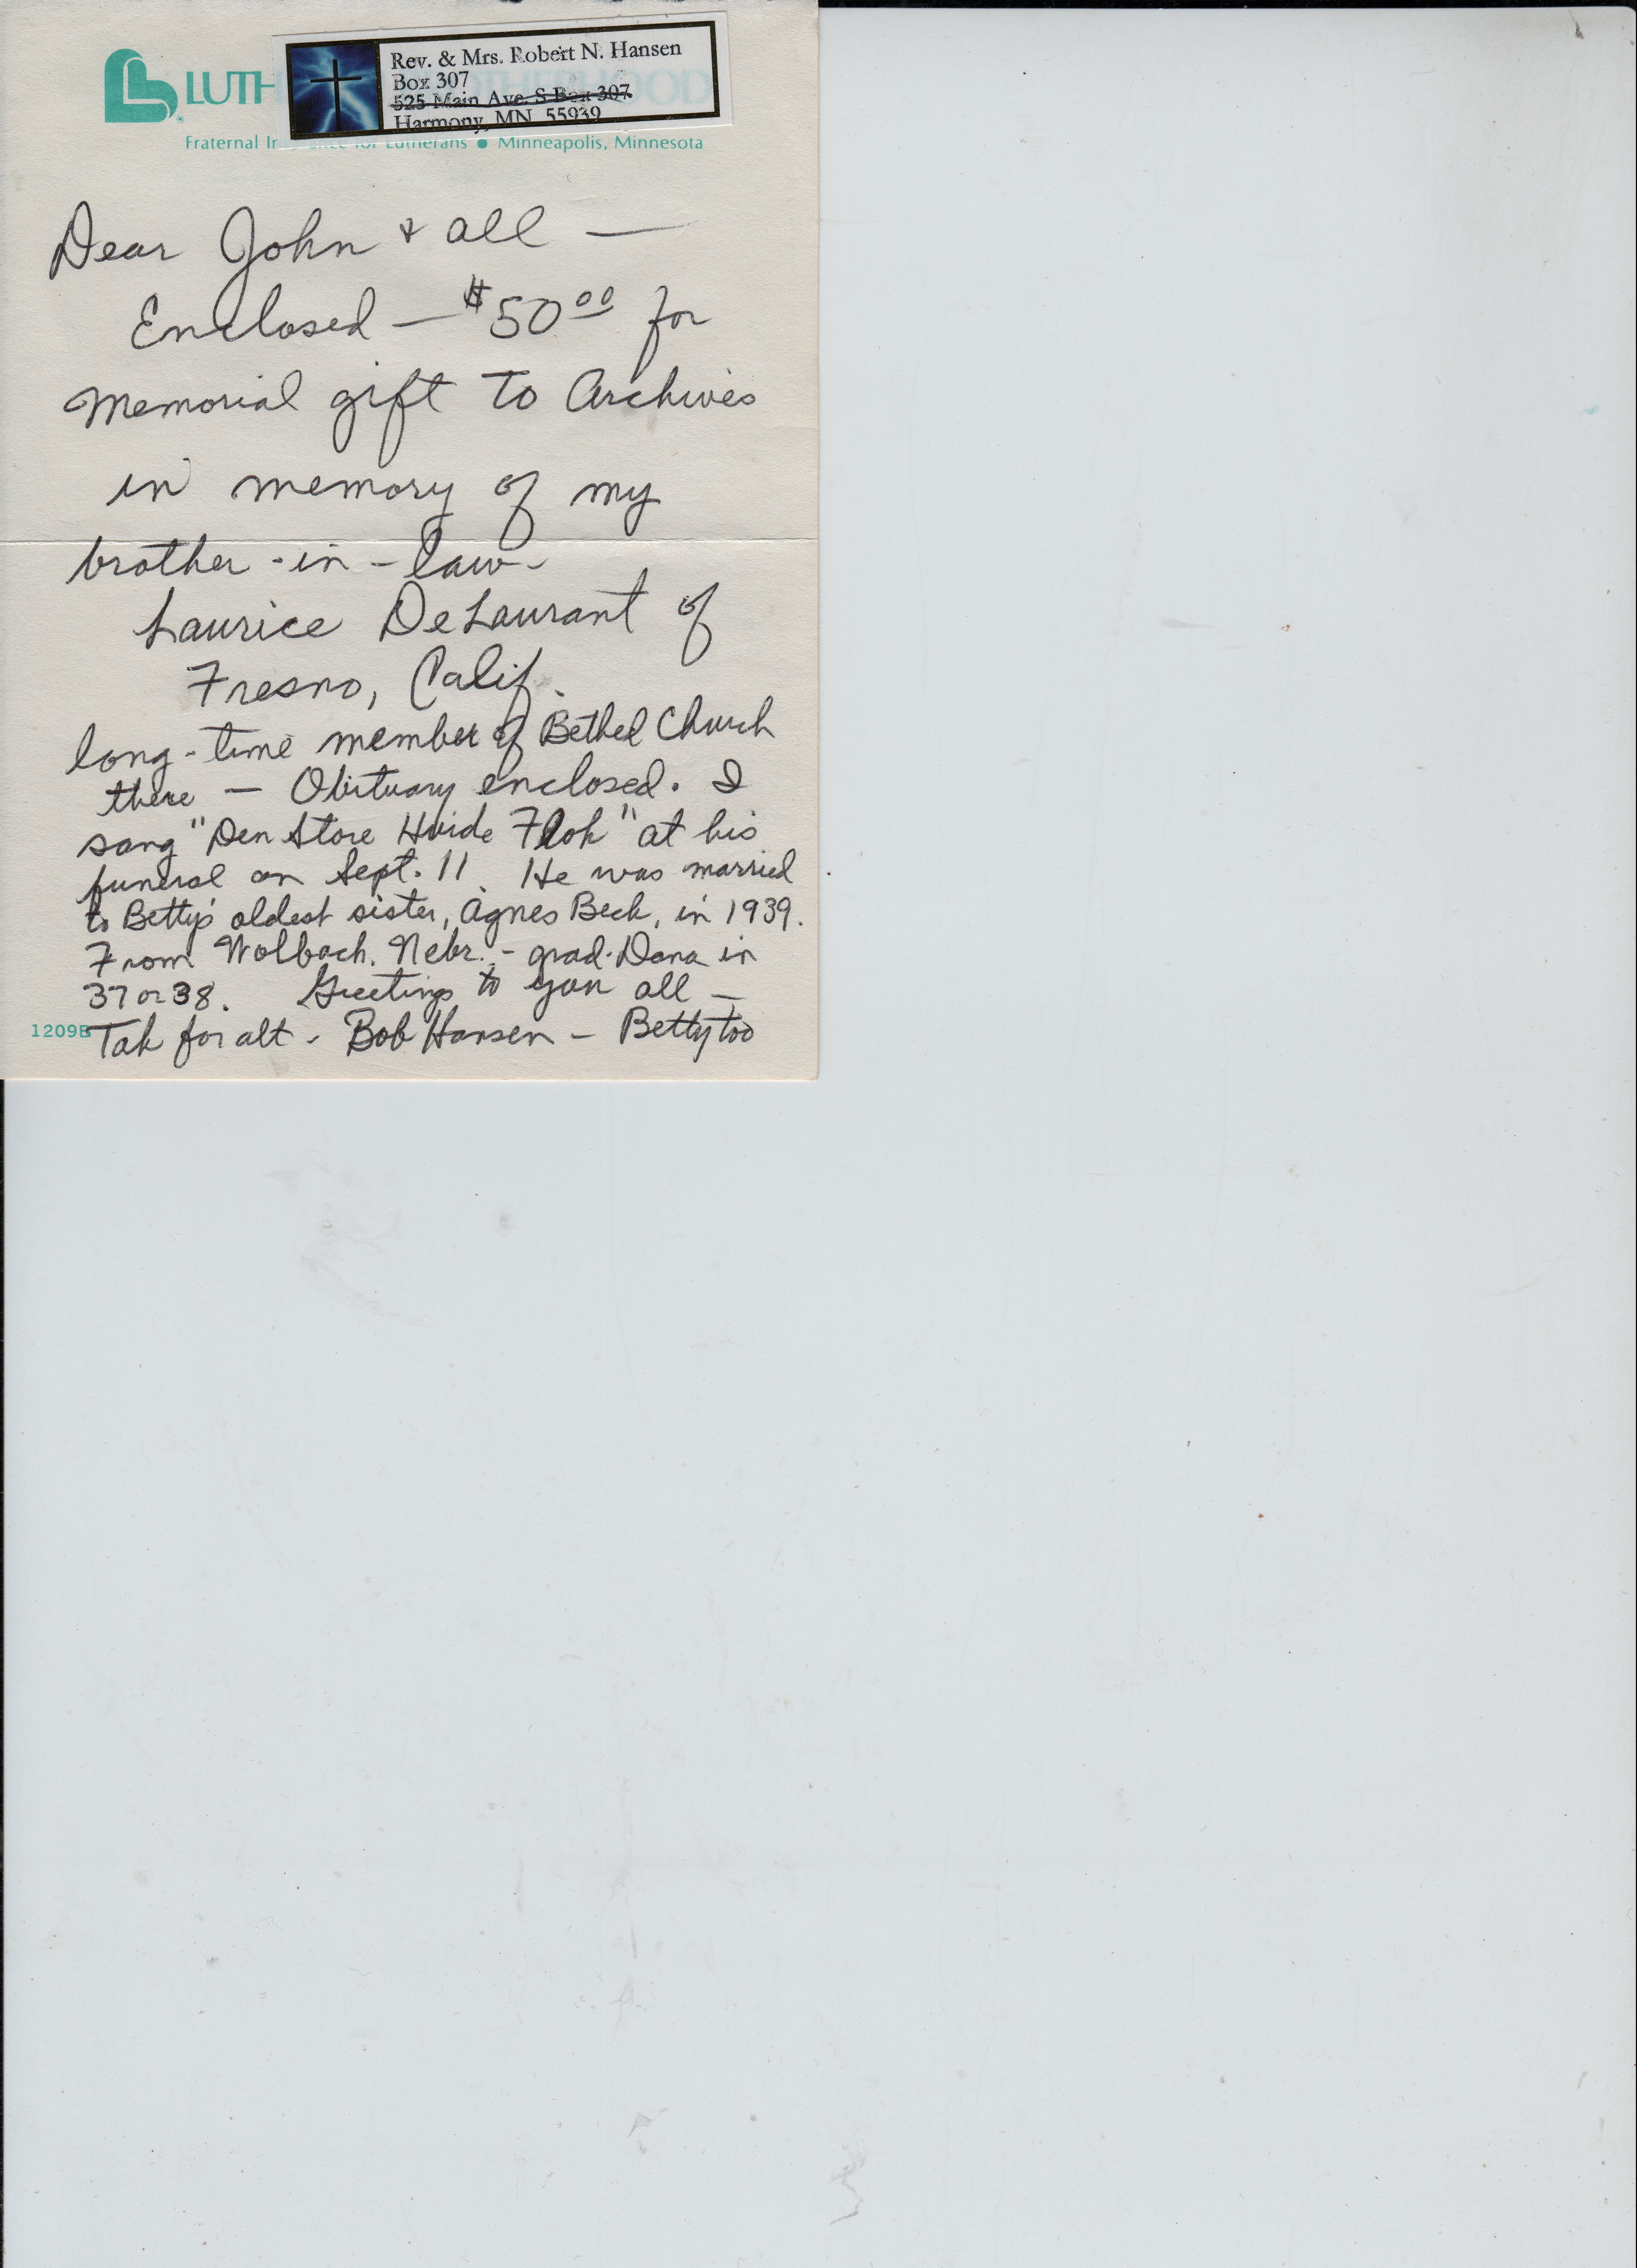 Rev. & Mrs. Robert N. Hansen
Box 307
525 Main Ave. S Box 307
Harmony, MN 55939
LUTH OOD
Fraternal In ance for Lutherans • Minneapolis, Minnesota
Dear John & all —
Enclosed — $50.00 for
Memorial gift to Archives
in memory of my
brother-in-law-
Laurice DeLaurant of
Fresno, Calif.
long-time member of Bethel Church
there — Obituary enclosed. I
sang "Den Store Hvide Flok" at his
funeral on Sept. 11. He was married
to Betty's oldest sister, Agnes Beck, in 1939.
From Wolbach. Nebr. - grad. Dana in
37 or 38. Greetings to you all —
1209B Tak for alt - Bob Hansen - Betty too